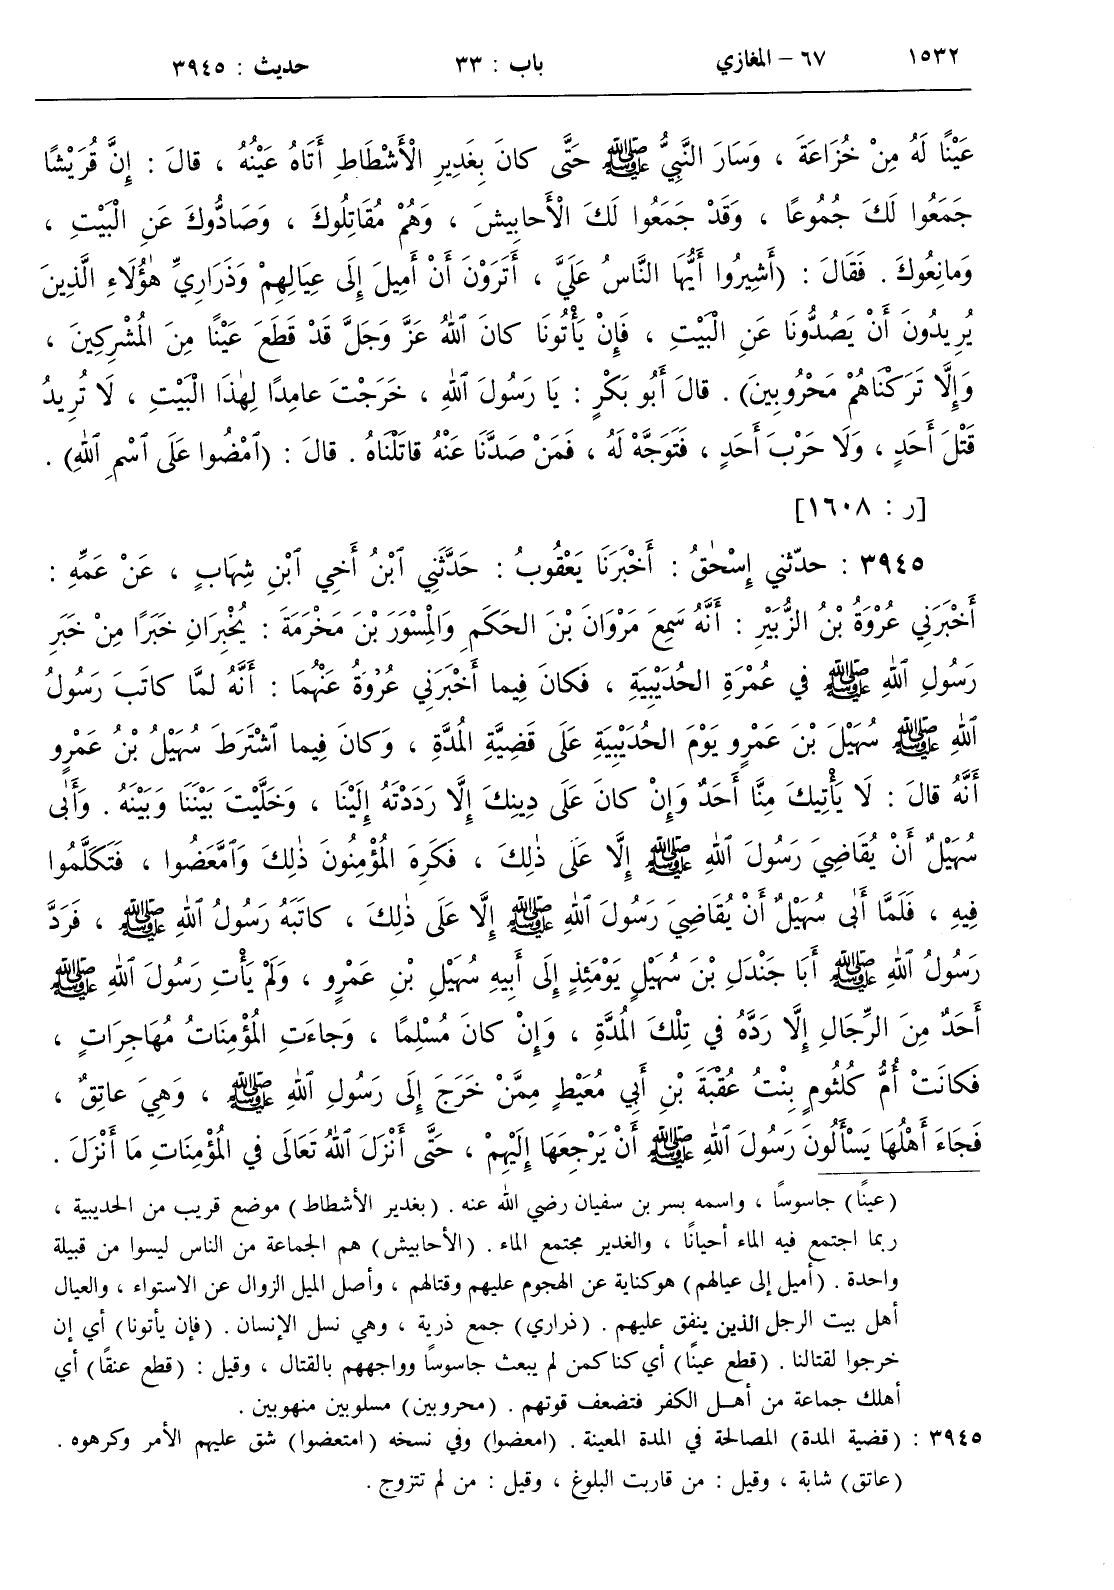 ١٥٣٢ ٦٧ – المغازي باب : ٣٣ حديث : ٣٩٤٥
عَيْنًا لَهُ مِنْ خُزَاعَةَ ، وَسَارَ النَّبِيُّ ﷺ حَتَّى كانَ بِغَدِيرِ الْأَشْطَاطِ أَتَاهُ عَيْنُهُ ، قالَ : إِنَّ قُرَيْشًا
جَمَعُوا لَكَ جُمُوعًا ، وَقَدْ جَمَعُوا لَكَ الْأَحابِيشَ ، وَهُمْ مُقَاتِلُوكَ ، وَصَادُّوكَ عَنِ الْبَيْتِ ،
وَمانِعُوكَ . فَقَالَ : (أَشِيرُوا أَيُّهَا النَّاسُ عَلَيَّ ، أَتَرَوْنَ أَنْ أَمِيلَ إِلَى عِيَالِهِمْ وَذَرَارِيِّ هٰؤُلَاءِ الَّذِينَ
يُرِيدُونَ أَنْ يَصُدُّونَا عَنِ الْبَيْتِ ، فَإِنْ يَأْتُونَا كانَ ٱللهُ عَزَّ وَجَلَّ قَدْ قَطَعَ عَيْنًا مِنَ الْمُشْرِكِينَ ،
وَإِلَّا تَرَكْنَاهُمْ مَحْرُوبِينَ) . قالَ أَبُو بَكْرٍ : يَا رَسُولَ ٱللهِ ، خَرَجْتَ عامِدًا لِهٰذَا الْبَيْتِ ، لَا تُرِيدُ
قَتْلَ أَحَدٍ ، وَلَا حَرْبَ أَحَدٍ ، فَتَوَجَّهْ لَهُ ، فَمَنْ صَدَّنَا عَنْهُ قاتَلْنَاهُ . قالَ : (ٱمْضُوا عَلَى ٱسْمِ ٱللهِ) .
[ر : ١٦٠٨]
٣٩٤٥ : حدّثني إِسْحٰقُ : أَخْبَرَنَا يَعْقُوبُ : حَدَّثَنِي ٱبْنُ أَخِي ٱبْنِ شِهَابٍ ، عَنْ عَمِّهِ :
أَخْبَرَنِي عُرْوَةُ بْنُ الزُّبَيْرِ : أَنَّهُ سَمِعَ مَرْوَانَ بْنَ الحَكَمِ وَالْمِسْوَرَ بْنَ مَخْرَمَةَ : يُخْبِرَانِ خَبَرًا مِنْ خَبَرِ
رَسُولِ ٱللهِ ﷺ في عُمْرَةِ الحُدَيْبِيَةِ ، فَكانَ فِيما أَخْبَرَنِي عُرْوَةُ عَنْهُمَا : أَنَّهُ لمَّا كاتَبَ رَسُولُ
ٱللهِ ﷺ سُهَيْلَ بْنَ عَمْرٍو يَوْمَ الحُدَيْبِيَةِ عَلَى قَضِيَّةِ الْمُدَّةِ ، وَكانَ فِيما ٱشْتَرَطَ سُهَيْلُ بْنُ عَمْرٍو
أَنَّهُ قالَ : لَا يَأْتِيكَ مِنَّا أَحَدٌ وَإِنْ كانَ عَلَى دِينِكَ إِلَّا رَدَدْتَهُ إِلَيْنَا ، وَخَلَّيْتَ بَيْنَنَا وَبَيْنَهُ . وَأَبٰى
سُهَيْلٌ أَنْ يُقَاضِيَ رَسُولَ ٱللهِ ﷺ إِلَّا عَلَى ذٰلِكَ ، فَكَرِهَ الْمُؤْمِنُونَ ذٰلِكَ وَٱمَّعَضُوا ، فَتَكَلَّمُوا
فِيهِ ، فَلَمَّا أَبٰى سُهَيْلٌ أَنْ يُقَاضِيَ رَسُولَ ٱللهِ ﷺ إِلَّا عَلَى ذٰلِكَ ، كاتَبَهُ رَسُولُ ٱللهِ ﷺ ، فَرَدَّ
رَسُولُ ٱللهِ ﷺ أَبَا جَنْدَلِ بْنَ سُهَيْلٍ يَوْمَئِذٍ إِلَى أَبِيهِ سُهَيْلِ بْنِ عَمْرٍو ، وَلَمْ يَأْتِ رَسُولَ ٱللهِ ﷺ
أَحَدٌ مِنَ الرِّجَالِ إِلَّا رَدَّهُ في تِلْكَ الْمُدَّةِ ، وَإِنْ كانَ مُسْلِمًا ، وَجاءَتِ الْمُؤْمِنَاتُ مُهَاجِرَاتٍ ،
فَكانَتْ أُمُّ كُلْثُومٍ بِنْتُ عُقْبَةَ بْنِ أَبِي مُعَيْطٍ مِمَّنْ خَرَجَ إِلَى رَسُولِ ٱللهِ ﷺ ، وَهِيَ عاتِقٌ ،
فَجَاءَ أَهْلُهَا يَسْأَلُونَ رَسُولَ ٱللهِ ﷺ أَنْ يَرْجِعَهَا إِلَيْهِمْ ، حَتَّى أَنْزَلَ ٱللهُ تَعَالَى في الْمُؤْمِنَاتِ مَا أَنْزَلَ .
(عينًا) جاسوسًا ، واسمه بسر بن سفيان رضي الله عنه . (بغدير الأشطاط) موضع قريب من الحديبية ،
ربما اجتمع فيه الماء أحيانًا ، والغدير مجتمع الماء . (الأحابيش) هم الجماعة من الناس ليسوا من قبيلة
واحدة . (أميل إلى عيالهم) هو كناية عن الهجوم عليهم وقتالهم ، وأصل الميل الزوال عن الاستواء ، والعيال
أهل بيت الرجل الذين ينفق عليهم . (ذراري) جمع ذرية ، وهي نسل الإنسان . (فإن يأتونا) أي إن
خرجوا لقتالنا . (قطع عينًا) أي كنا كمن لم يبعث جاسوسًا وواجههم بالقتال ، وقيل : (قطع عنقًا) أي
أهلك جماعة من أهل الكفر فتضعف قوتهم . (محروبين) مسلوبين منهوبين .
٣٩٤٥ : (قضية المدة) المصالحة في المدة المعينة . (امعضوا) وفي نسخه (امتعضوا) شق عليهم الأمر وكرهوه .
(عاتق) شابة ، وقيل : من قاربت البلوغ ، وقيل : من لم تتزوج .